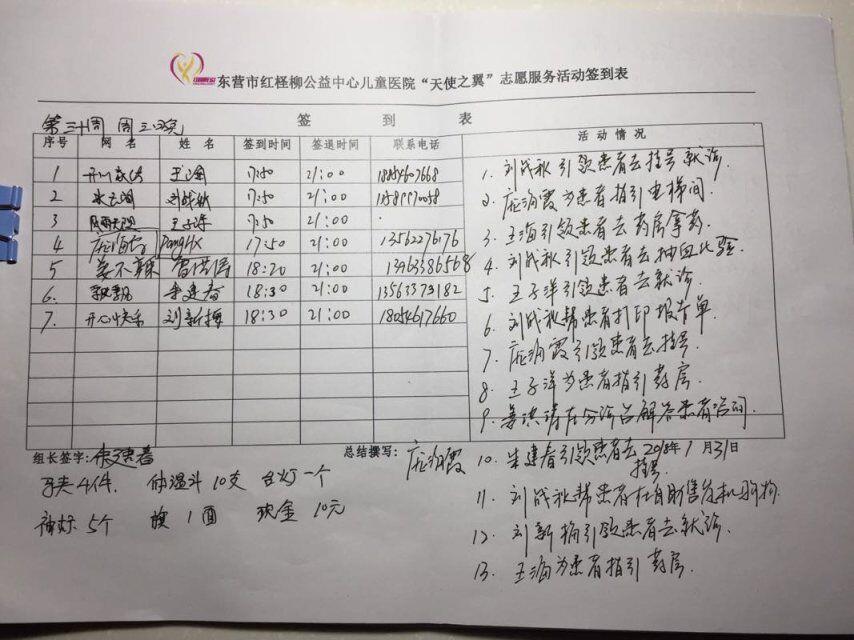 东营市红柽柳公益中心儿童医院“天使之翼”志愿服务活动签到表
第三十周 周三
签 到 表
序号 网 名 姓 名 签到时间 签退时间 联系电话 活 动 情 况
1 17:50 21:00 18854607668
2 刘战秋 17:50 21:00
3 王子洋 17:50 21:00
4 PangHx 17:50 21:00 13562276176
5 姜不辣 18:20 21:00 13963386568
6. 飘飘 朱建春 18:30 21:00 13563379182
7. 开心快乐 刘新梅 18:30 21:00 18054617660
1. 刘战秋引领患者去挂号就诊.
2. 庞海霞为患者指引电梯间.
3. 王海引领患者去药房拿药.
4. 刘战秋引领患者去抽血化验.
5. 王子洋引领患者去就诊.
6. 刘战秋帮患者打印报告单.
7. 庞海霞引领患者去挂号.
8. 王子洋为患者指引药房.
9. 在分诊台解答患者咨询.
组长签字: 朱建春 总结撰写: 庞海霞
10. 朱建春引领患者去挂号. 2018年1月31日
11. 刘战秋帮患者在自助售货机购物.
12. 刘新梅引领患者去就诊.
13. 王海为患者指引药房.
马夹4件. 体温计10支 台灯一个
5个 旗1面 现金10元